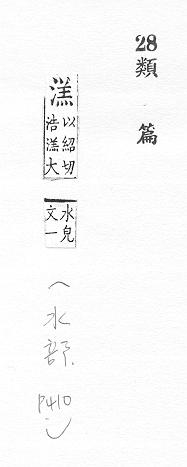 28
類篇
溔
以紹切
浩溔大
水皃
文一
(水部.
P410)